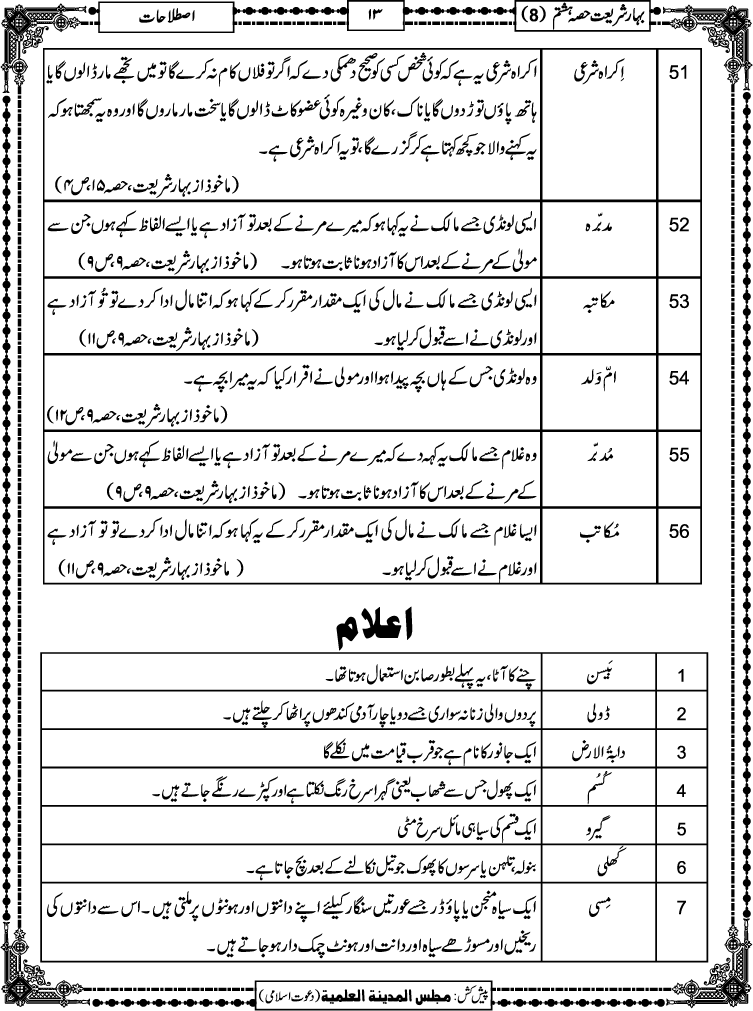 بہار شریعت حصہ ہشتم (8)
۱۳
اصطلاحات
51 اِکراہ شرعی اکراہ شرعی یہ ہے کہ کوئی شخص کسی کو صحیح دھمکی دے کہ اگر تو فلاں کام نہ کرے گا تو میں تجھے مار ڈالوں گا یا
ہاتھ پاؤں توڑ دوں گا یا ناک، کان وغیرہ کوئی عضو کاٹ ڈالوں گا یا سخت مار ماروں گا اور وہ یہ سمجھتا ہو کہ
یہ کہنے والا جو کچھ کہتا ہے کر گزرے گا، تو یہ اکراہ شرعی ہے۔
(ماخوذ از بہار شریعت، حصہ ۱۵، ص ۴)
52 مدبّرہ ایسی لونڈی جسے مالک نے یہ کہا ہو کہ میرے مرنے کے بعد تو آزاد ہے یا ایسے الفاظ کہے ہوں جن سے
مولیٰ کے مرنے کے بعد اس کا آزاد ہونا ثابت ہوتا ہو۔ (ماخوذ از بہار شریعت، حصہ ۹، ص ۹)
53 مکاتبہ ایسی لونڈی جسے مالک نے مال کی ایک مقدار مقرر کر کے کہا ہو کہ اتنا مال ادا کر دے تو تُو آزاد ہے
اور لونڈی نے اسے قبول کر لیا ہو۔ (ماخوذ از بہار شریعت، حصہ ۹، ص ۱۱)
54 امّ وَلد وہ لونڈی جس کے ہاں بچہ پیدا ہوا اور مولی نے اقرار کیا کہ یہ میرا بچہ ہے۔
(ماخوذ از بہار شریعت، حصہ ۹، ص ۱۲)
55 مُدبّر وہ غلام جسے مالک یہ کہہ دے کہ میرے مرنے کے بعد تو آزاد ہے یا ایسے الفاظ کہے ہوں جن سے مولیٰ
کے مرنے کے بعد اس کا آزاد ہونا ثابت ہوتا ہو۔ (ماخوذ از بہار شریعت، حصہ ۹، ص ۹)
56 مُکاتب ایسا غلام جسے مالک نے مال کی ایک مقدار مقرر کر کے یہ کہا ہو کہ اتنا مال ادا کر دے تو تو آزاد ہے
اور غلام نے اسے قبول کر لیا ہو۔ (ماخوذ از بہار شریعت، حصہ ۹، ص ۱۱)
اعلام
1 بَیسن چنے کا آٹا، یہ پہلے بطور صابن استعمال ہوتا تھا۔
2 ڈولی پردوں والی زنانہ سواری جسے دو یا چار آدمی کندھوں پر اٹھا کر چلتے ہیں۔
3 دابۃ الارض ایک جانور کا نام ہے جو قرب قیامت میں نکلے گا
4 کُسُم ایک پھول جس سے شہاب یعنی گہرا سرخ رنگ نکلتا ہے اور کپڑے رنگے جاتے ہیں۔
5 گیرو ایک قسم کی سیاہی مائل سرخ مٹی
6 کَھلی بنولہ، تلہن یا سرسوں کا پھوک جو تیل نکالنے کے بعد بچ جاتا ہے۔
7 مِسی ایک سیاہ منجن یا پاؤڈر جسے عورتیں سنگار کیلئے اپنے دانتوں اور ہونٹوں پر ملتی ہیں۔ اس سے دانتوں کی
ریخیں اور مسوڑھے سیاہ اور دانت اور ہونٹ چمک دار ہو جاتے ہیں۔
پیش کش: مجلس المدینۃ العلمیۃ (دعوت اسلامی)